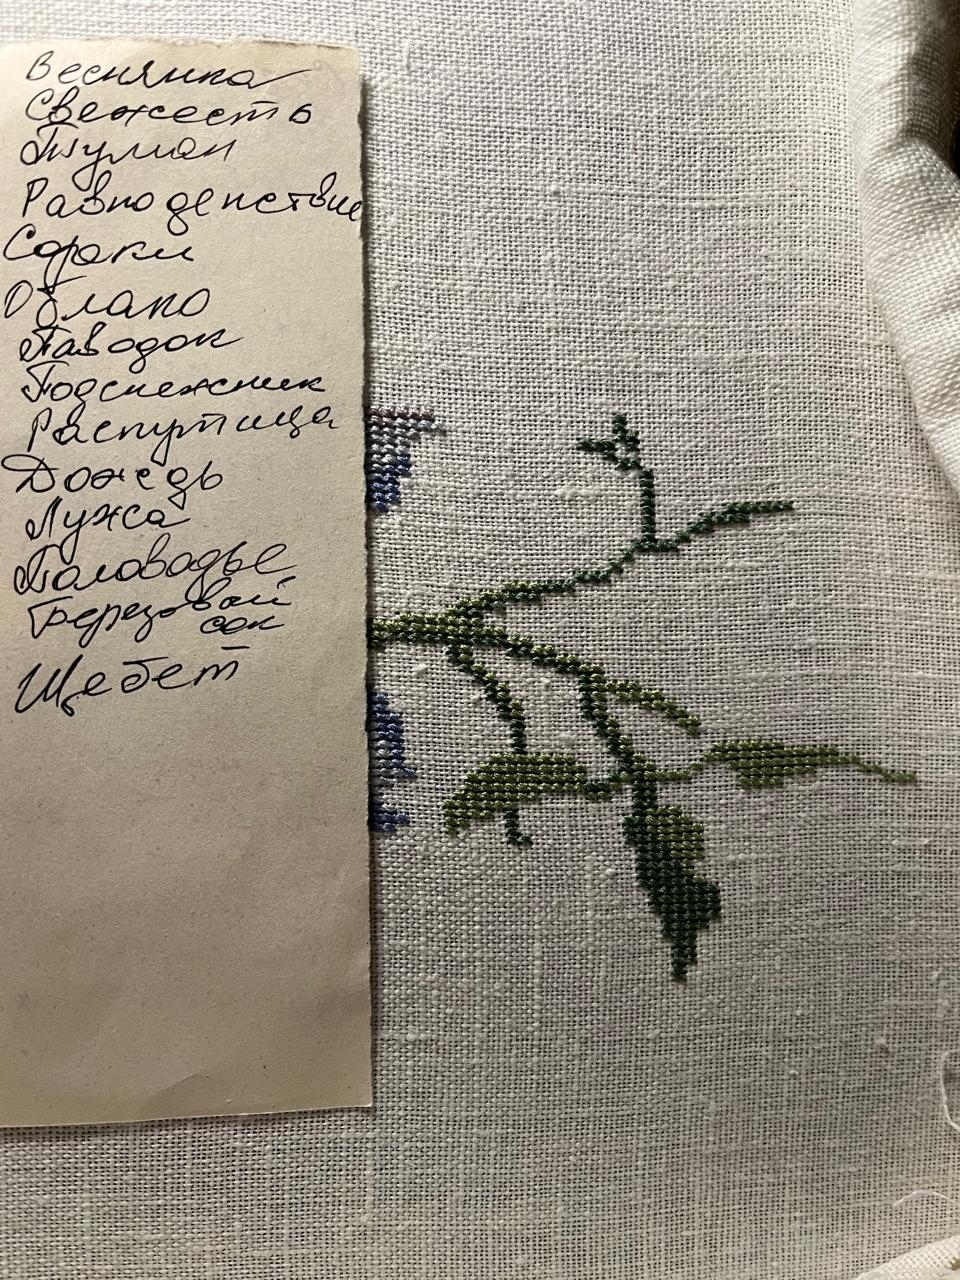 Веснянка
Свежесть
Туман
Равноденствие
Сороки
Облако
Паводок
Подснежник
Распутица
Дождь
Лужа
Половодье
Березовый
сок
Щебет